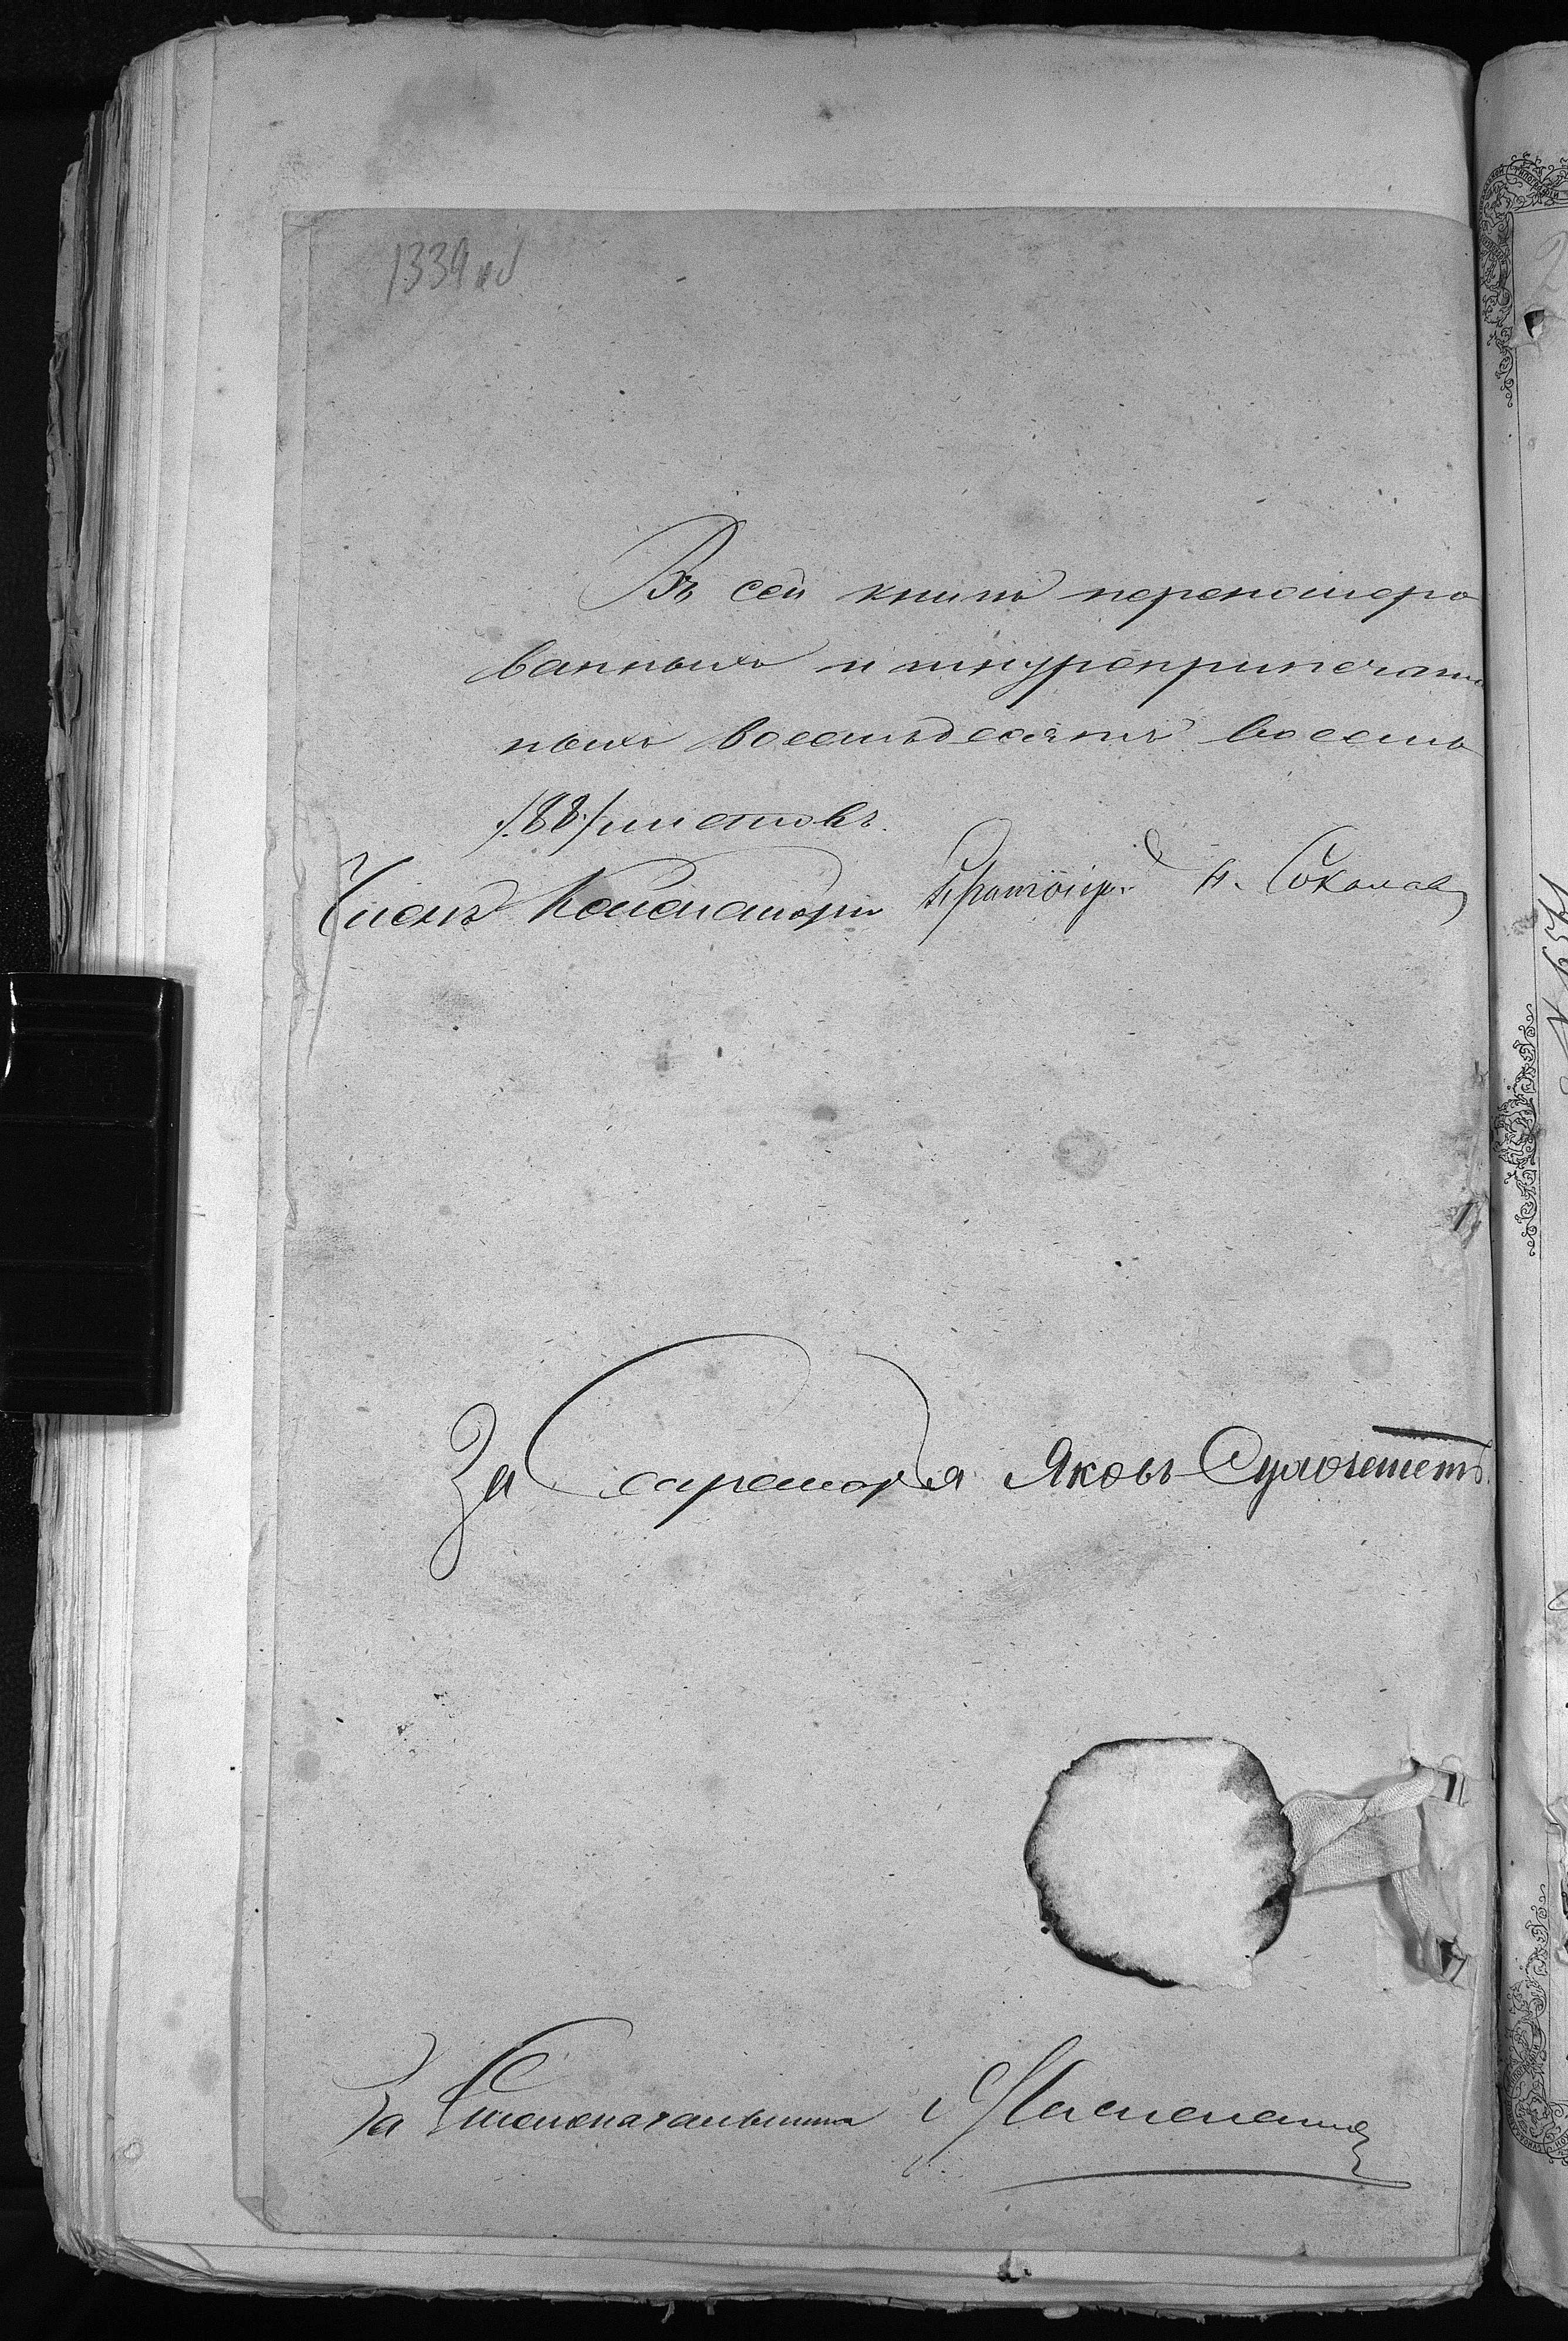 1339 об
Въ сей книгѣ перенумеро
ванныхъ и шнуроприпечатан
ныхъ восемьдесятъ восемь
/88/ листовъ.
Членъ Консисторіи Протоіер. Н. Соколовъ
За Секретаря Яковъ
За Столоначальника